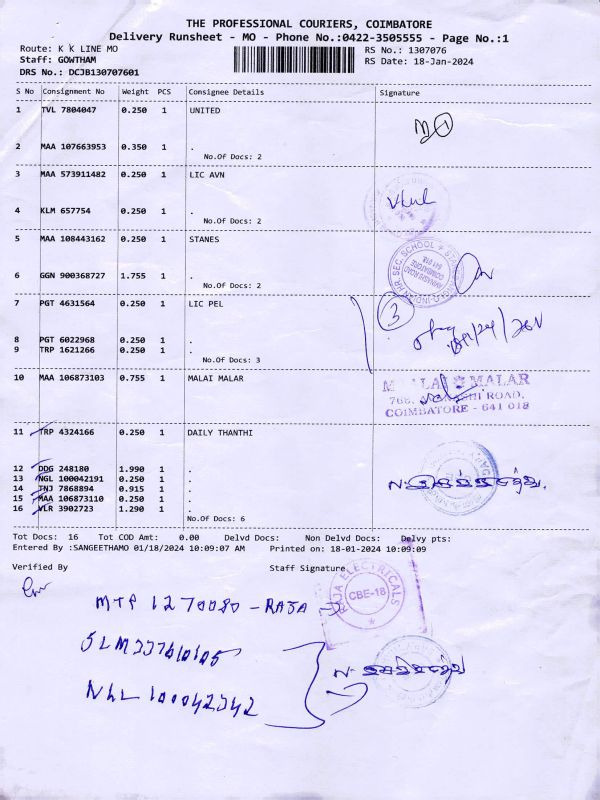 THE PROFESSIONAL COURIERS, COIMBATORE
Delivery Runsheet - MO - Phone No.:0422-3505555 - Page No.:1
Route: K K LINE MO
RS No.: 1307076
Staff: GOWTHAM
RS Date: 18-Jan-2024
DRS No.: DCJB130707601
S No Consignment No Weight PCS Consignee Details Signature
1 TVL 7804047 0.250 1 UNITED
2 MAA 107663953 0.350 1 .
No.Of Docs: 2
3 MAA 573911482 0.250 1 LIC AVN
4 KLM 657754 0.250 1 .
No.Of Docs: 2
5 MAA 108443162 0.250 1 STANES
6 GGN 900368727 1.755 1 .
No.Of Docs: 2
HR. SEC. SCHOOL
AVINASHI ROAD
COIMBATORE
641 018
7 PGT 4631564 0.250 1 LIC PEL
3
8 PGT 6022968 0.250 1 .
9 TRP 1621266 0.250 1 .
No.Of Docs: 3
10 MAA 106873103 0.755 1 MALAI MALAR
MALAR
ROAD,
COIMBATORE - 641 018
11 TRP 4324166 0.250 1 DAILY THANTHI
12 DDG 248180 1.990 1 .
13 NGL 100042191 0.250 1 .
14 TNJ 7868894 0.915 1 .
15 MAA 106873110 0.250 1 .
16 VLR 3902723 1.290 1 .
No.Of Docs: 6
Tot Docs: 16 Tot COD Amt: 0.00 Delvd Docs: Non Delvd Docs: Delvy pts:
Entered By :SANGEETHAMO 01/18/2024 10:09:07 AM Printed on: 18-01-2024 10:09:09
Verified By Staff Signature
ELECTRICALS
CBE-18
MTP 1270080 - RAJA